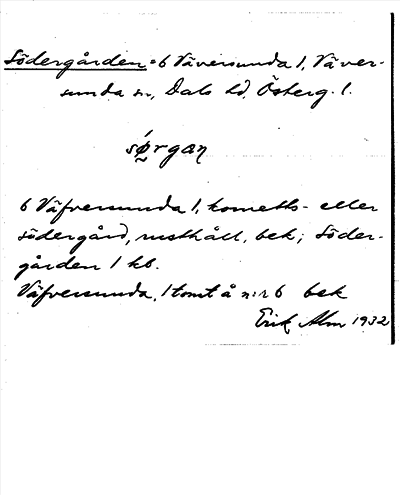 Södergården = 6 Väversunda 1, Väver-
sunda sn, Dals hd, Österg. l.
sørgan
6 Väfversunda 1, kometts- eller
södergård, rusthåll, bek; Söder-
gården 1 kb.
Väfversunda, 1 tomt å n:r 6 bek
Erik Alm 1932